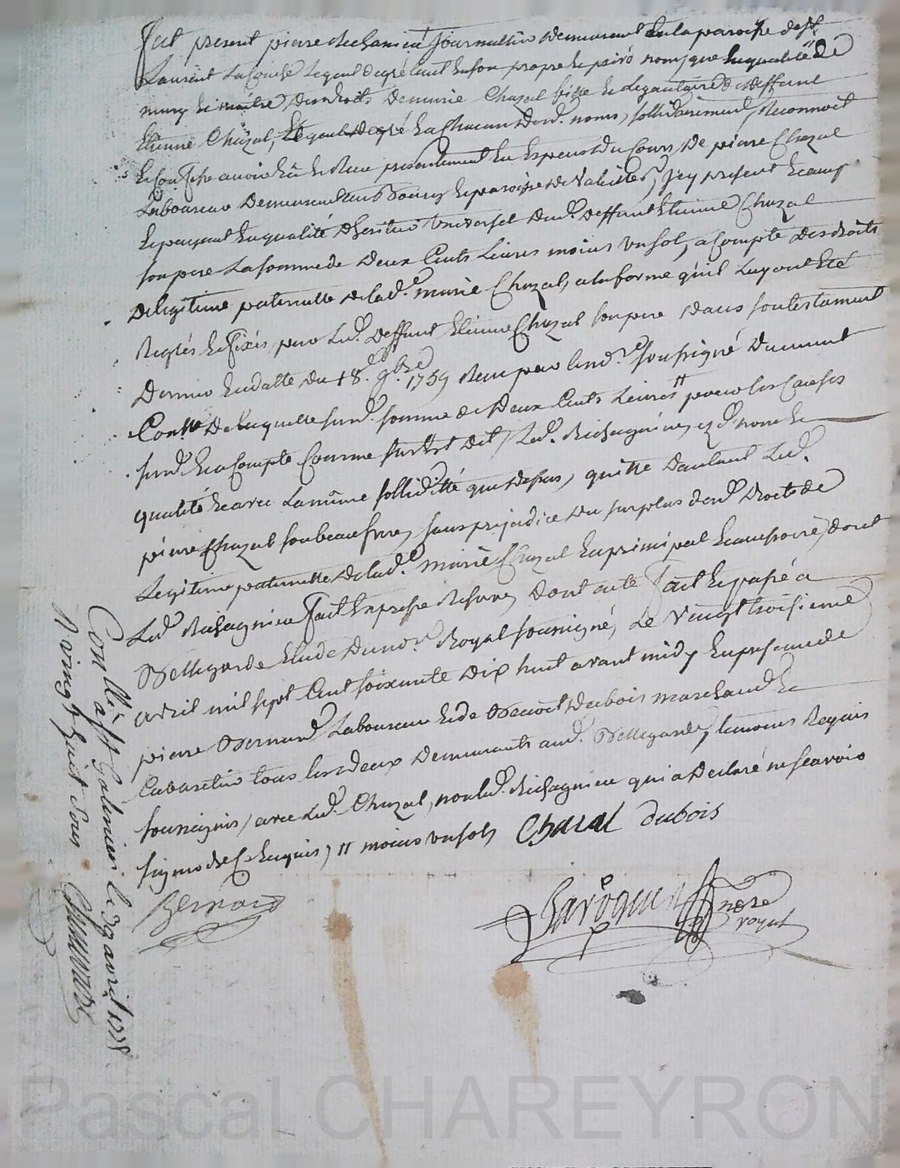 fut present pierre Richagnieu journallier demeurant en la paroisse de st
Laurent La Conche Lequel de gré tant en son propre et privé nom, que en qualité de
mary et maitre des droits de marie Chazal fille et légataire de deffunt
Etienne Chazal, Lequel de gré en chacun desd. noms, sollidairement, Reconnoit
et Confesse avoir Eû et Reçu presentement en Especes du Cours, De pierre Chazal
Laboureur demeurant au Bourg et paroisse de present
et payant En qualité d'heritier Universel dud. deffunt Etienne Chazal
son pere La somme de deux Cents Livres moins un sol, a Compte des droits
de legitime paternelle de lad. marie Chazal, a la forme qu'il Luy ont Eté
Reglés et fixés par Led. deffunt Etienne Chazal son pere dans son testament
Dernier en datte du 18e. 9bre 1759 Reçu par le soussigné Duement
Con.lé De laquelle surd. somme de Deux Cents Livres tt pour les Causes
surd. et a Compte Comme sus Est dit, Led. Richagnieu, ez d. nom et
qualité et avec La même solliditté que dessus, quitte d'autant Led.
pierre Chazal son beau frere, sans prejudice du surplus desd. droits de
Legitime paternelle de lad. marie Chazal en principal et accessoire, dont
Led. Richagnieu fait Expresse Reserve, Dont acte fait et passé a
Bellegarde Etude du no.re Royal soussigné, Le Vingt troisieme
avril mil sept Cent soixante dix huit avant midy En presence de
pierre Bernard Laboureur et de Benoit Dubois marchand et
Cabaretier tous les deux Demeurants aud. Bellegarde, temoins Requis
soussignés, avec Led. Chazal, non Led. Richagnieu qui a Declaré ne scavoir
signer de ce Enquis, tt moins un sol,
Chazal dubois
Bernard
no.re
royal
Con.llé a st Galmier le 29 avril 1778
R vingt huit sous
Pascal CHAREYRON